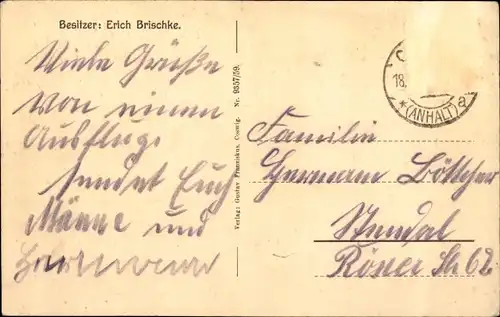 Besitzer: Erich Brischke.
Viele Grüße
von einem
Ausfluge
sendet Euch
Männe und
Verlag: Gustav Franziskus, Coswig. Nr. 9557/59.
18.
* (ANHALT) a
Familie
Hermann Böttcher
Stendal
Str 62